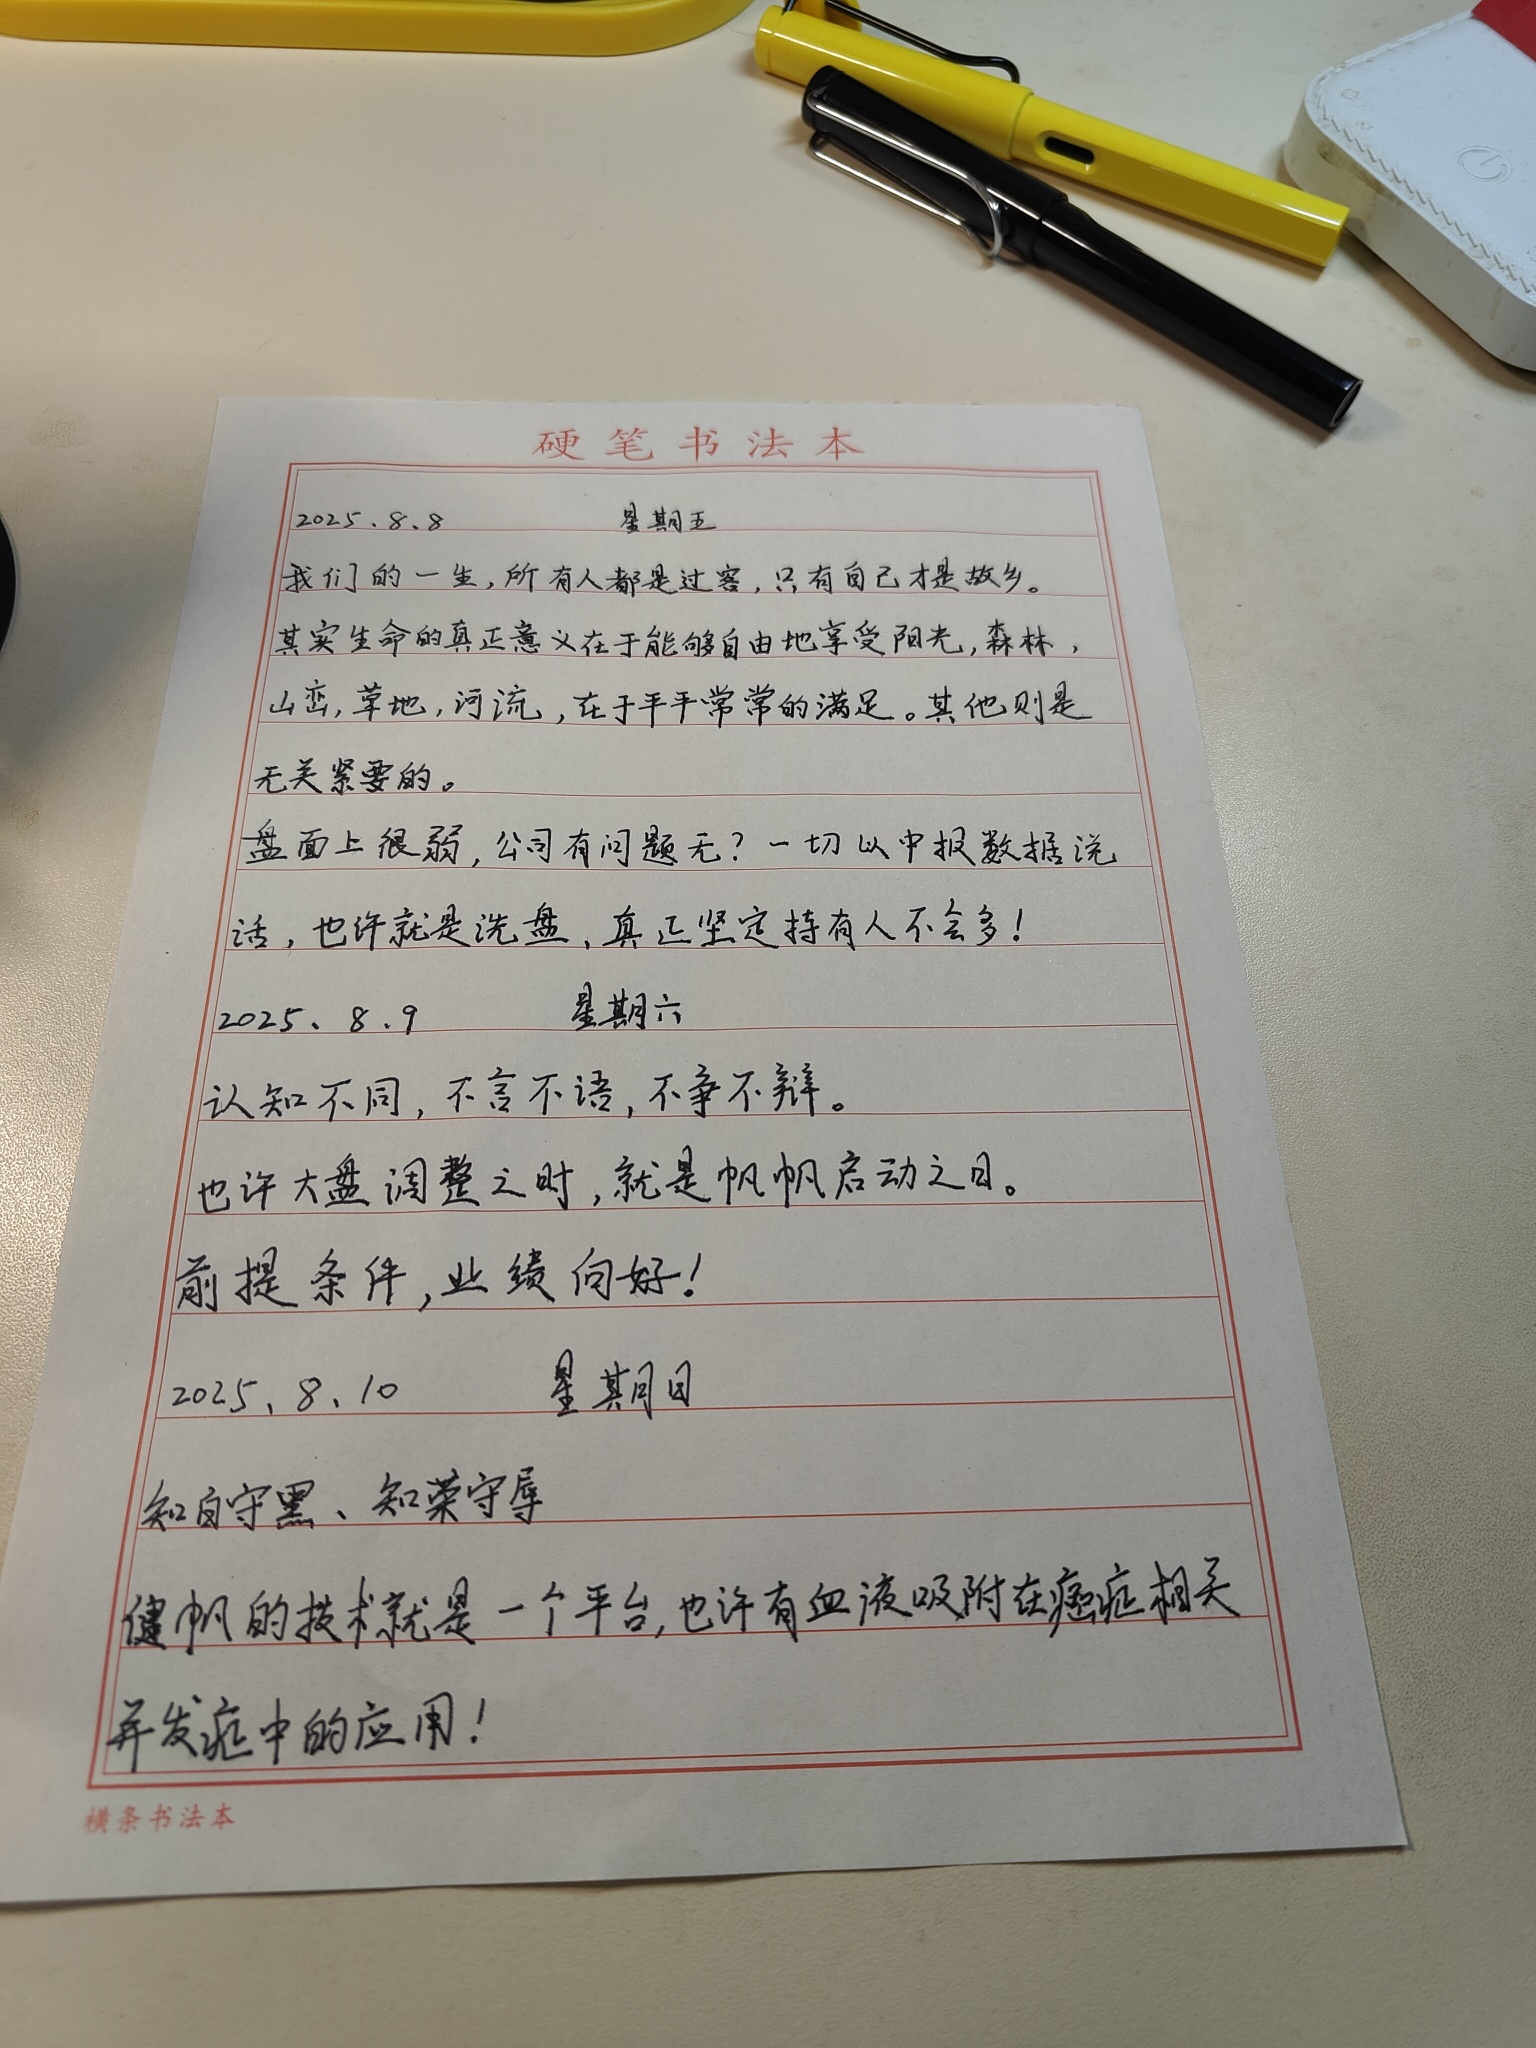 硬笔书法本
2025.8.8 星期五
我们的一生,所有人都是过客,只有自己才是故乡。
其实生命的真正意义在于能够自由地享受阳光,森林,
山峦,草地,河流,在于平平常常的满足。其他则是
无关紧要的。
盘面上很弱,公司有问题无?一切以中报数据说
话,也许就是洗盘、真正坚定持有人不会多!
2025、8.9 星期六
认知不同,不言不语,不争不辩。
也许大盘调整之时,就是帆帆启动之日。
前提条件,业绩向好!
2025、8、10 星期日
知白守黑、知荣守辱
健帆的技术就是一个平台,也许有血液吸附在癌症相关
并发症中的应用!
横条书法本